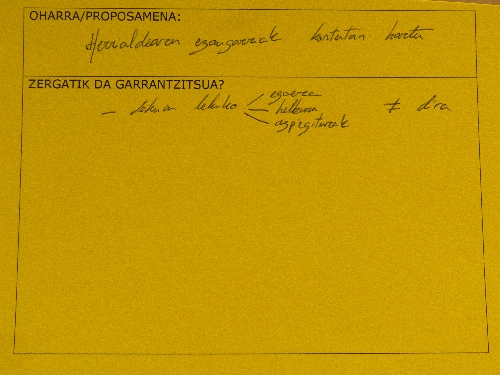 OHARRA/PROPOSAMENA:
Herrialdearen ezaugarriak kontutan hartu
ZERGATIK DA GARRANTZITSUA?
egoera
- lekuan lekuko helburua ≠ dira
azpegiturak